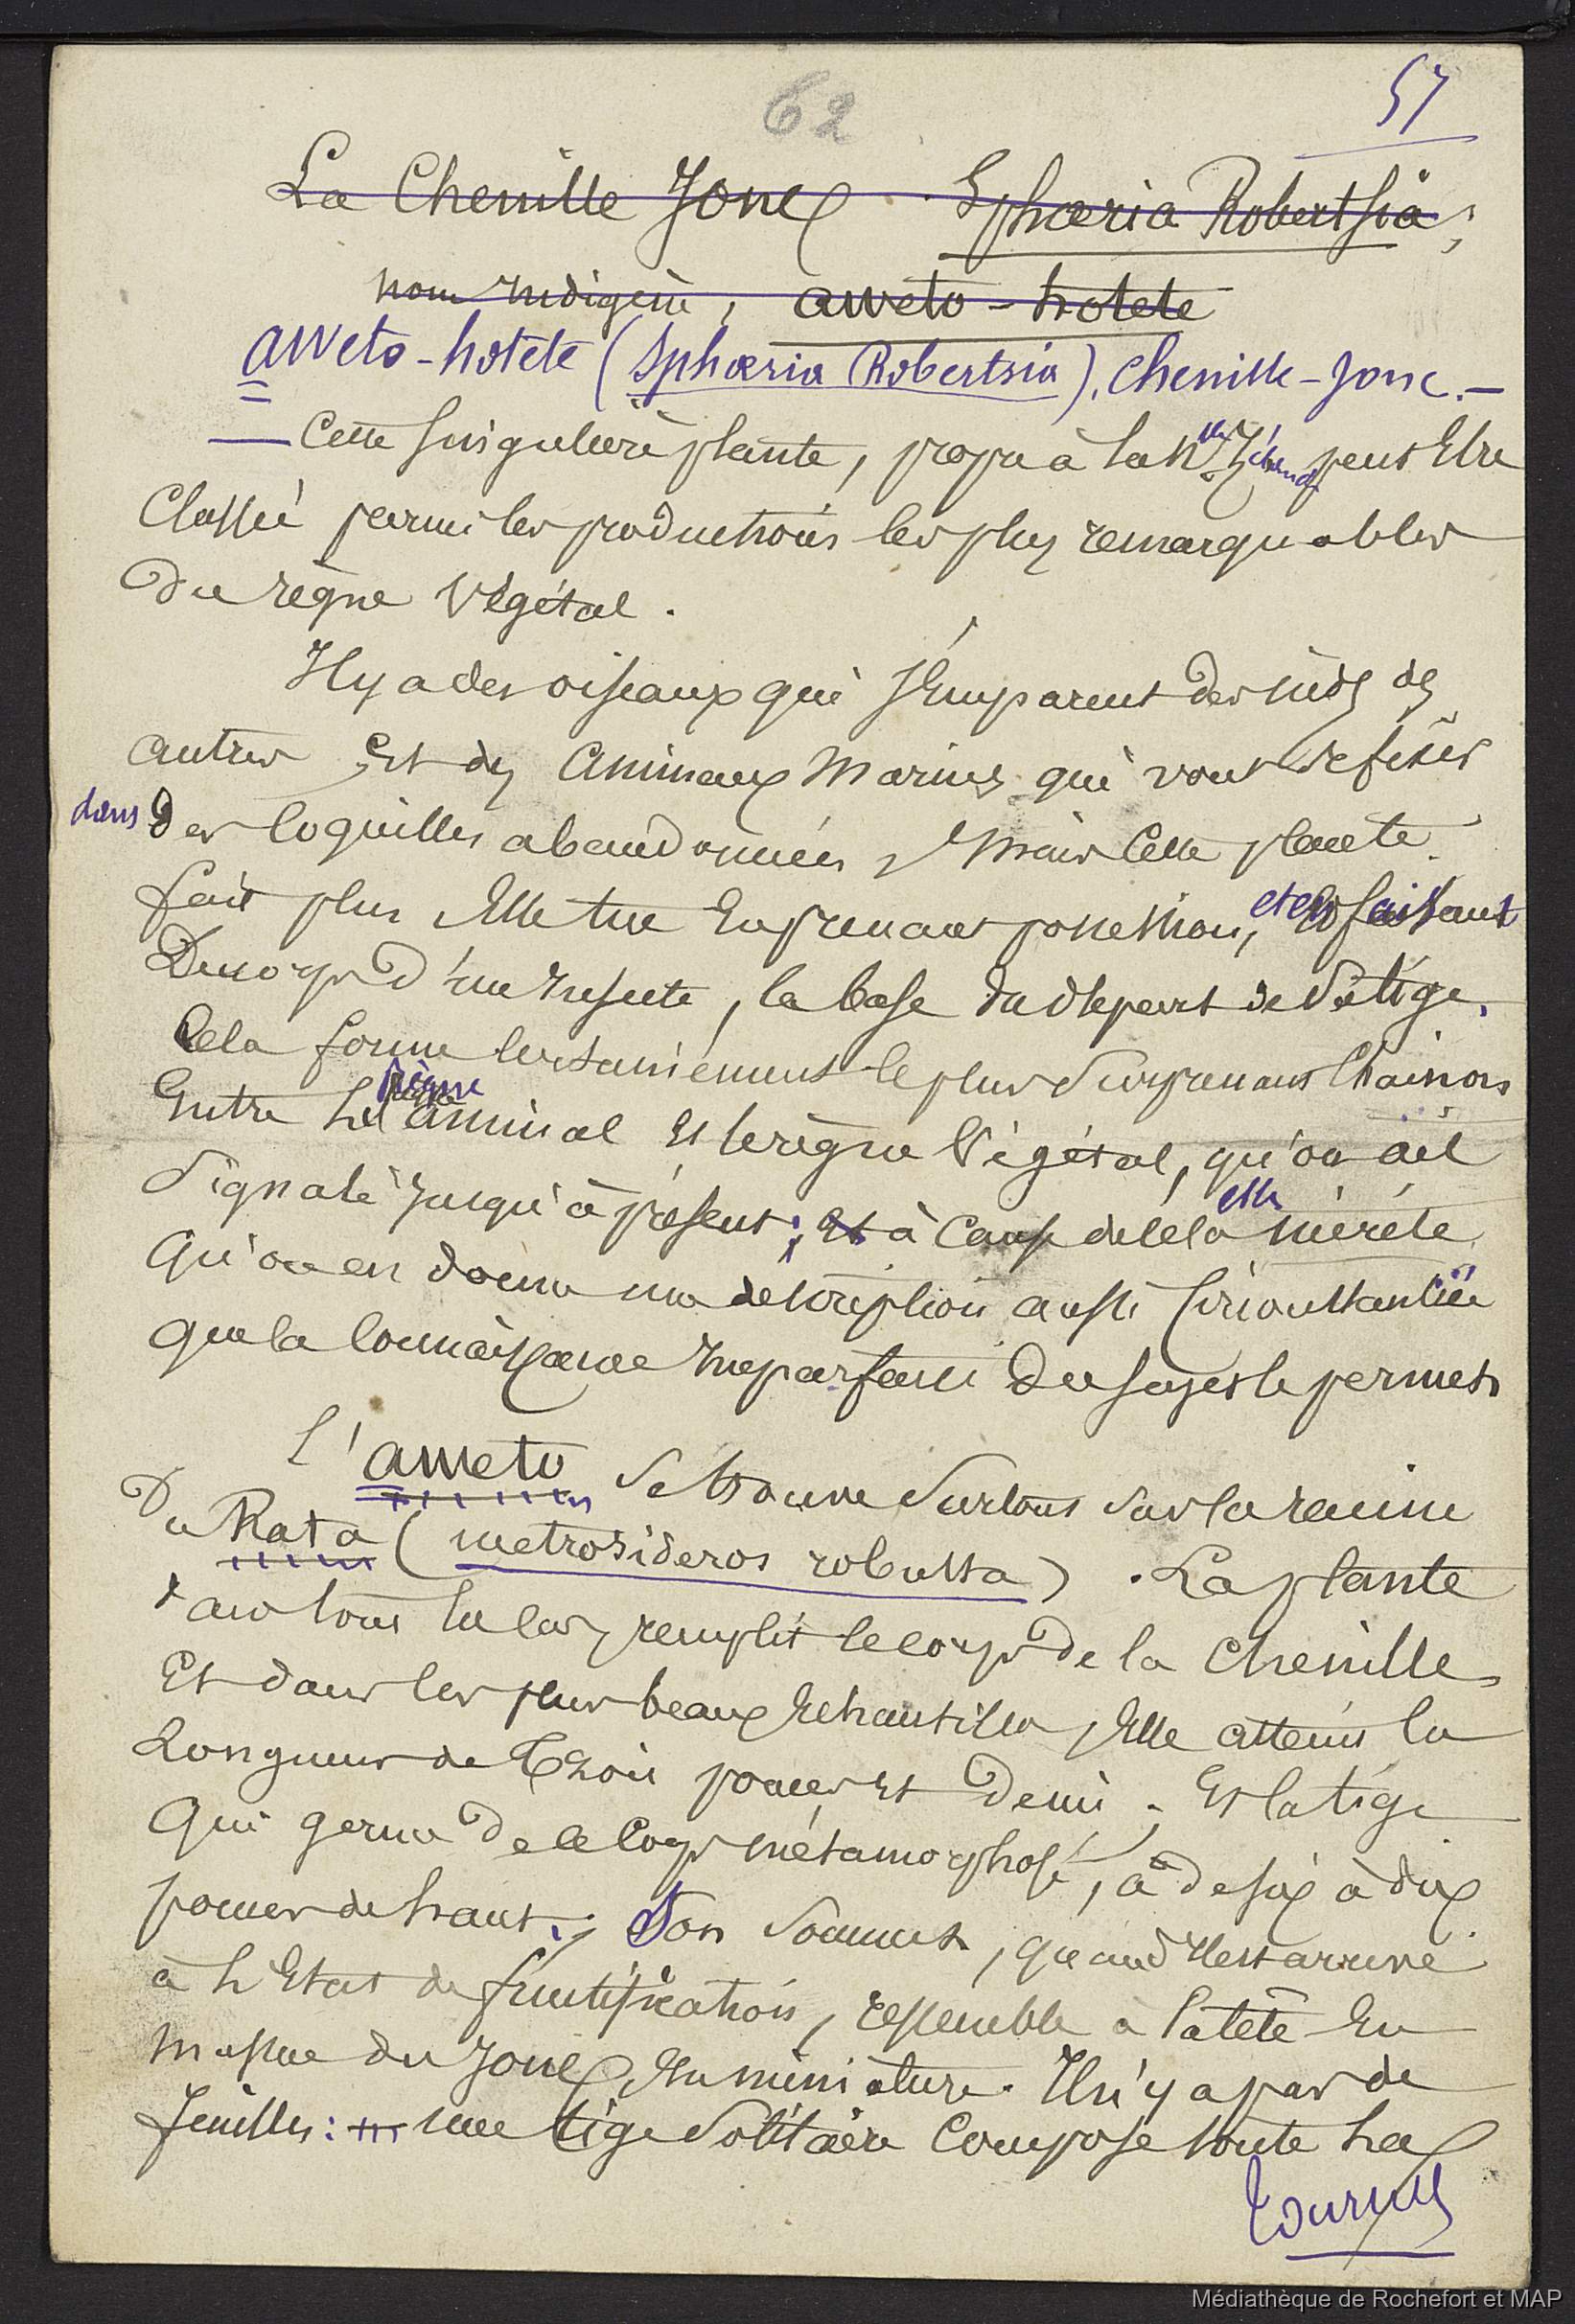 62
57
La Chenille Jonc Sphæria Robertsia,
nom indigène, aweto-hotete
aweto-hotete (Sphæria Robertsia). Chenille-Jonc.—
— Cette singulière plante, propre à la Nlle Zéland peut être
classée parmi les productions les plus remarquables
du règne végétal.
Il y a des oiseaux qui s'emparent des nids des
autres et des animaux marins qui vont se fixer
dans des coquilles abandonnées, mais cette plante
fait plus elle tue en prenant possession, et en faisant
du corps d'un insecte, la base du départ de sa tige.
Cela forme certainement le plus surprenant chainon
entre le règne animal et le règne végétal, qu'on ait
signalé jusqu'à présent; et à cause de cela elle mérite
qu'on en donne une description aussi circonstanciée
que la connaissance imparfaite du sujet le permet
l'aweto se trouve surtout sur la racine
du Rata (metrosideros robusta). La plante
dans tous les cas, remplit le corps de la chenille
et dans les plus beaux échantillons, elle atteint la
longueur de trois pouces et demi; et la tige
qui germe de ce corps métamorphosé, a de six à dix
pouces de haut. Son sommet, quand il est arrivé
à l'état de fructification, ressemble à la tête en
massue du jonc, en miniature. Il n'y a pas de
feuilles: une tige solitaire compose toute la
Tournez
Médiathèque de Rochefort et MAP